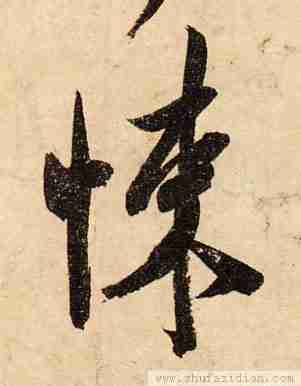 悚
www.shufazidian.com